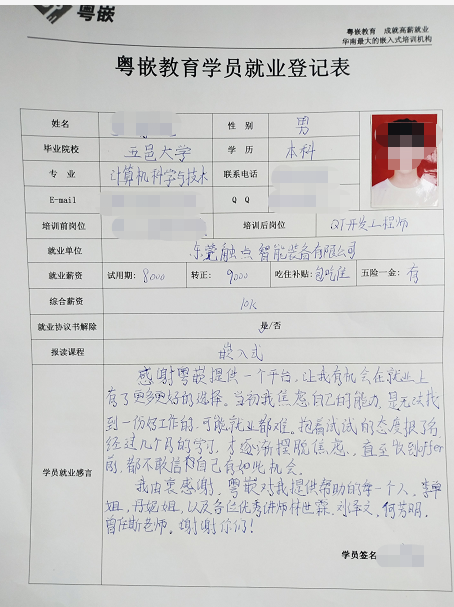 粤嵌
粤嵌教育 成就高薪就业
华南最大的嵌入式培训机构
粤嵌教育学员就业登记表
姓名 性 别 男
毕业院校 五邑大学 学 历 本科
专 业 计算机科学与技术 联系电话
E-mail Q Q
培训前岗位 培训后岗位 QT开发工程师
就业单位 东莞触点智能装备有限公司
就业薪资 试用期: 8000 转正: 9000 吃住补贴: 包吃住 五险一金: 有
综合薪资 10k
就业协议书解除 是/否
报读课程 嵌入式
学员就业感言
感谢粤嵌提供一个平台，让我有机会在就业上
有了更多更好的选择。当初我焦虑自己的能力，是无法找
到一份好工作的，可能就业都难。抱着试试的态度报了名
经过几个月的学习，才逐渐摆脱焦虑，直至收到
前，都不敢信自己有如此机会。
我由衷感谢，粤嵌对我提供帮助的每一个人，李
姐，丹妮姐，以及各位优秀讲师林世霖，刘泽文，何芳明，
老师。谢谢你们！
学员签名